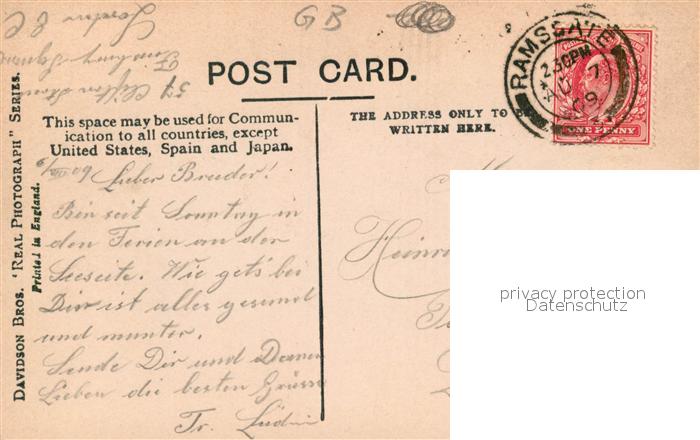 GB
London E C
Finsbury Square
54 Clifton
POST CARD.
This space may be used for Commun-
ication to all countries, except
United States, Spain and Japan.
THE ADDRESS ONLY TO BE
WRITTEN HERE.
RAMSGATE
2.30PM
AU 7
09
ONE PENNY
DAVIDSON BROS. "REAL PHOTOGRAPH" SERIES.
Printed in England.
6/VIII 09 Lieber Bruder!
Bin seit Sonntag in
den Ferien an der
Seeseite. Wie gets' bei
Dir ist alles gesund
und munter.
Sende Dir und Deinen
Lieben die besten Grüsse
Fr.
Heinr
privacy protection
Datenschutz